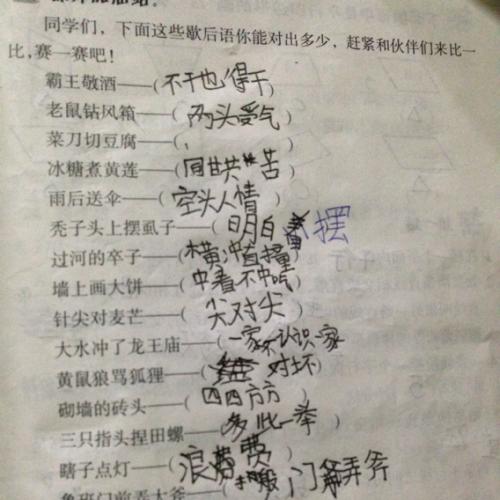 同学们，下面这些歇后语你能对出多少，赶紧和伙伴们来比一
比，赛一赛吧！
霸王敬酒——（不干也得干）
老鼠钻风箱——（两头受气）
菜刀切豆腐——（
冰糖煮黄莲——（同甘共苦）
雨后送伞——（空头人情）
秃子头上摆虱子——（明白摆
过河的卒子——（横冲直撞）
墙上画大饼——（中看不中吃）
针尖对麦芒——（尖对尖）
大水冲了龙王庙——（一家不认识一家
黄鼠狼骂狐狸——（对坏）
砌墙的砖头——（四四方方）
三只指头捏田螺——（多此一举）
瞎子点灯——（浪费）
鲁班门前弄大斧——（搬门弄斧